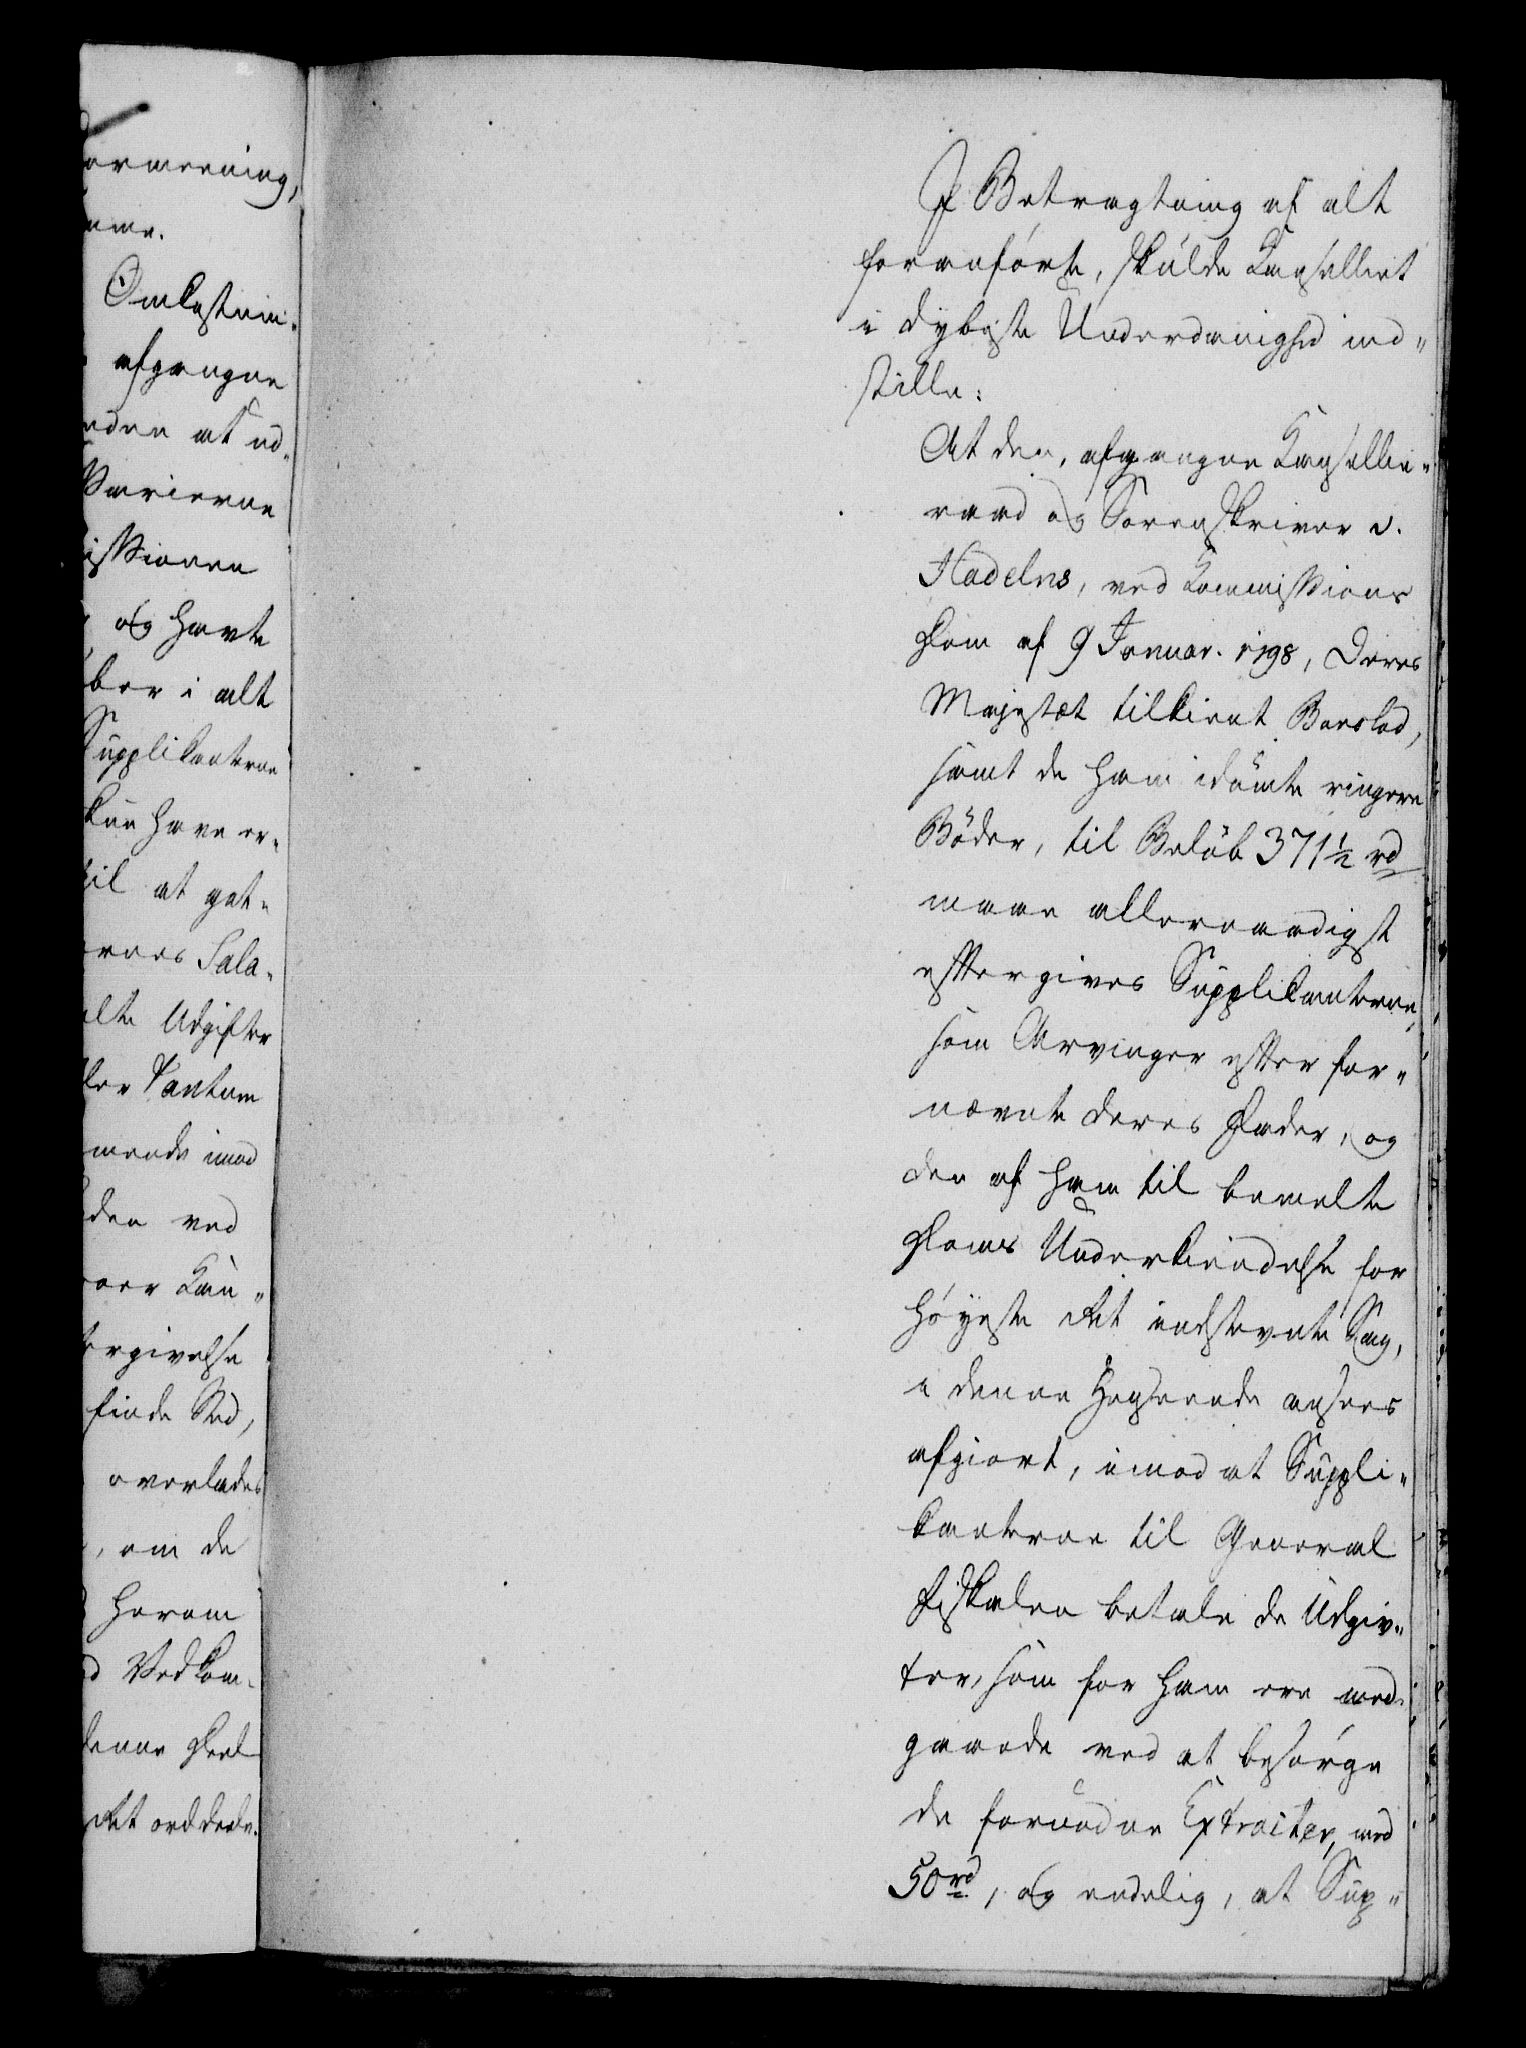 ormeening,
mme.
Omkostnin-
afgangne
eden at ud-
Parterne
issionen
og havte
ber i alt
Supplikanterne
kun have er-
til at got-
ernes Sala-
alte Udgifter
ler Tantum
mende imod
den ved
Kan-
tergivelse
finde Sted,
overlades
, om de
herom
d Vedkom-
denne Deel
Ret ord deele.
I Betragtning af alt
foranførte, skulde Kanselliet
i dybeste Underdanighed ind-
stille:
At den, afgangne Kansellie-
raad og Sorenskriver v.
Hadelns, ved Kommissions
Dom af 9 Januar. 1798, Deres
Majestæt tilkient Boeslod,
samt de ham idømte ringere
Bøder, til Beløb 371½ rd
maae allernaadigst
eftergives Supplikanterne,
som Arvinger efter for-
nævnte deres Fader, og
den af ham til bemelte
Doms Underkiendelse for
Høyeste Ret indstevnte Sag,
i denne Henseende ansees
afgiort, imod at Suppli-
kanterne til General
Fiskalen betale de Udgiv-
ter, som for ham ere med-
gaaede ved at besørge
de forundne Extracter, med
50 rd, og endelig, at Sup-